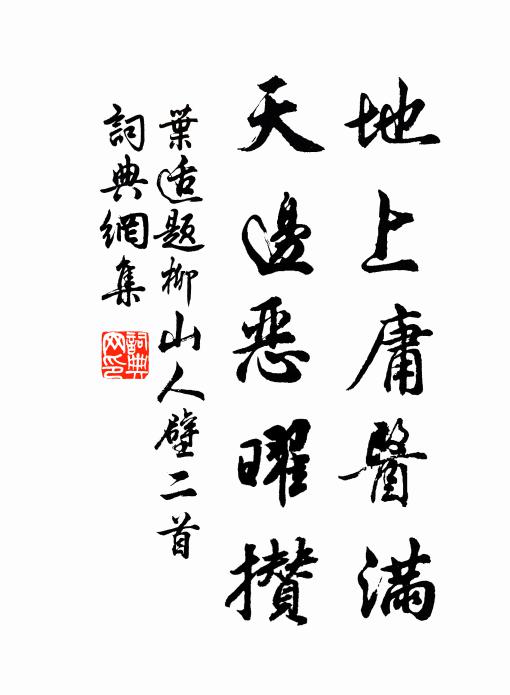 地上庸醫滿
天邊惡曜攢
葉适題柳山人壁二首
詞典網集
詞典網印